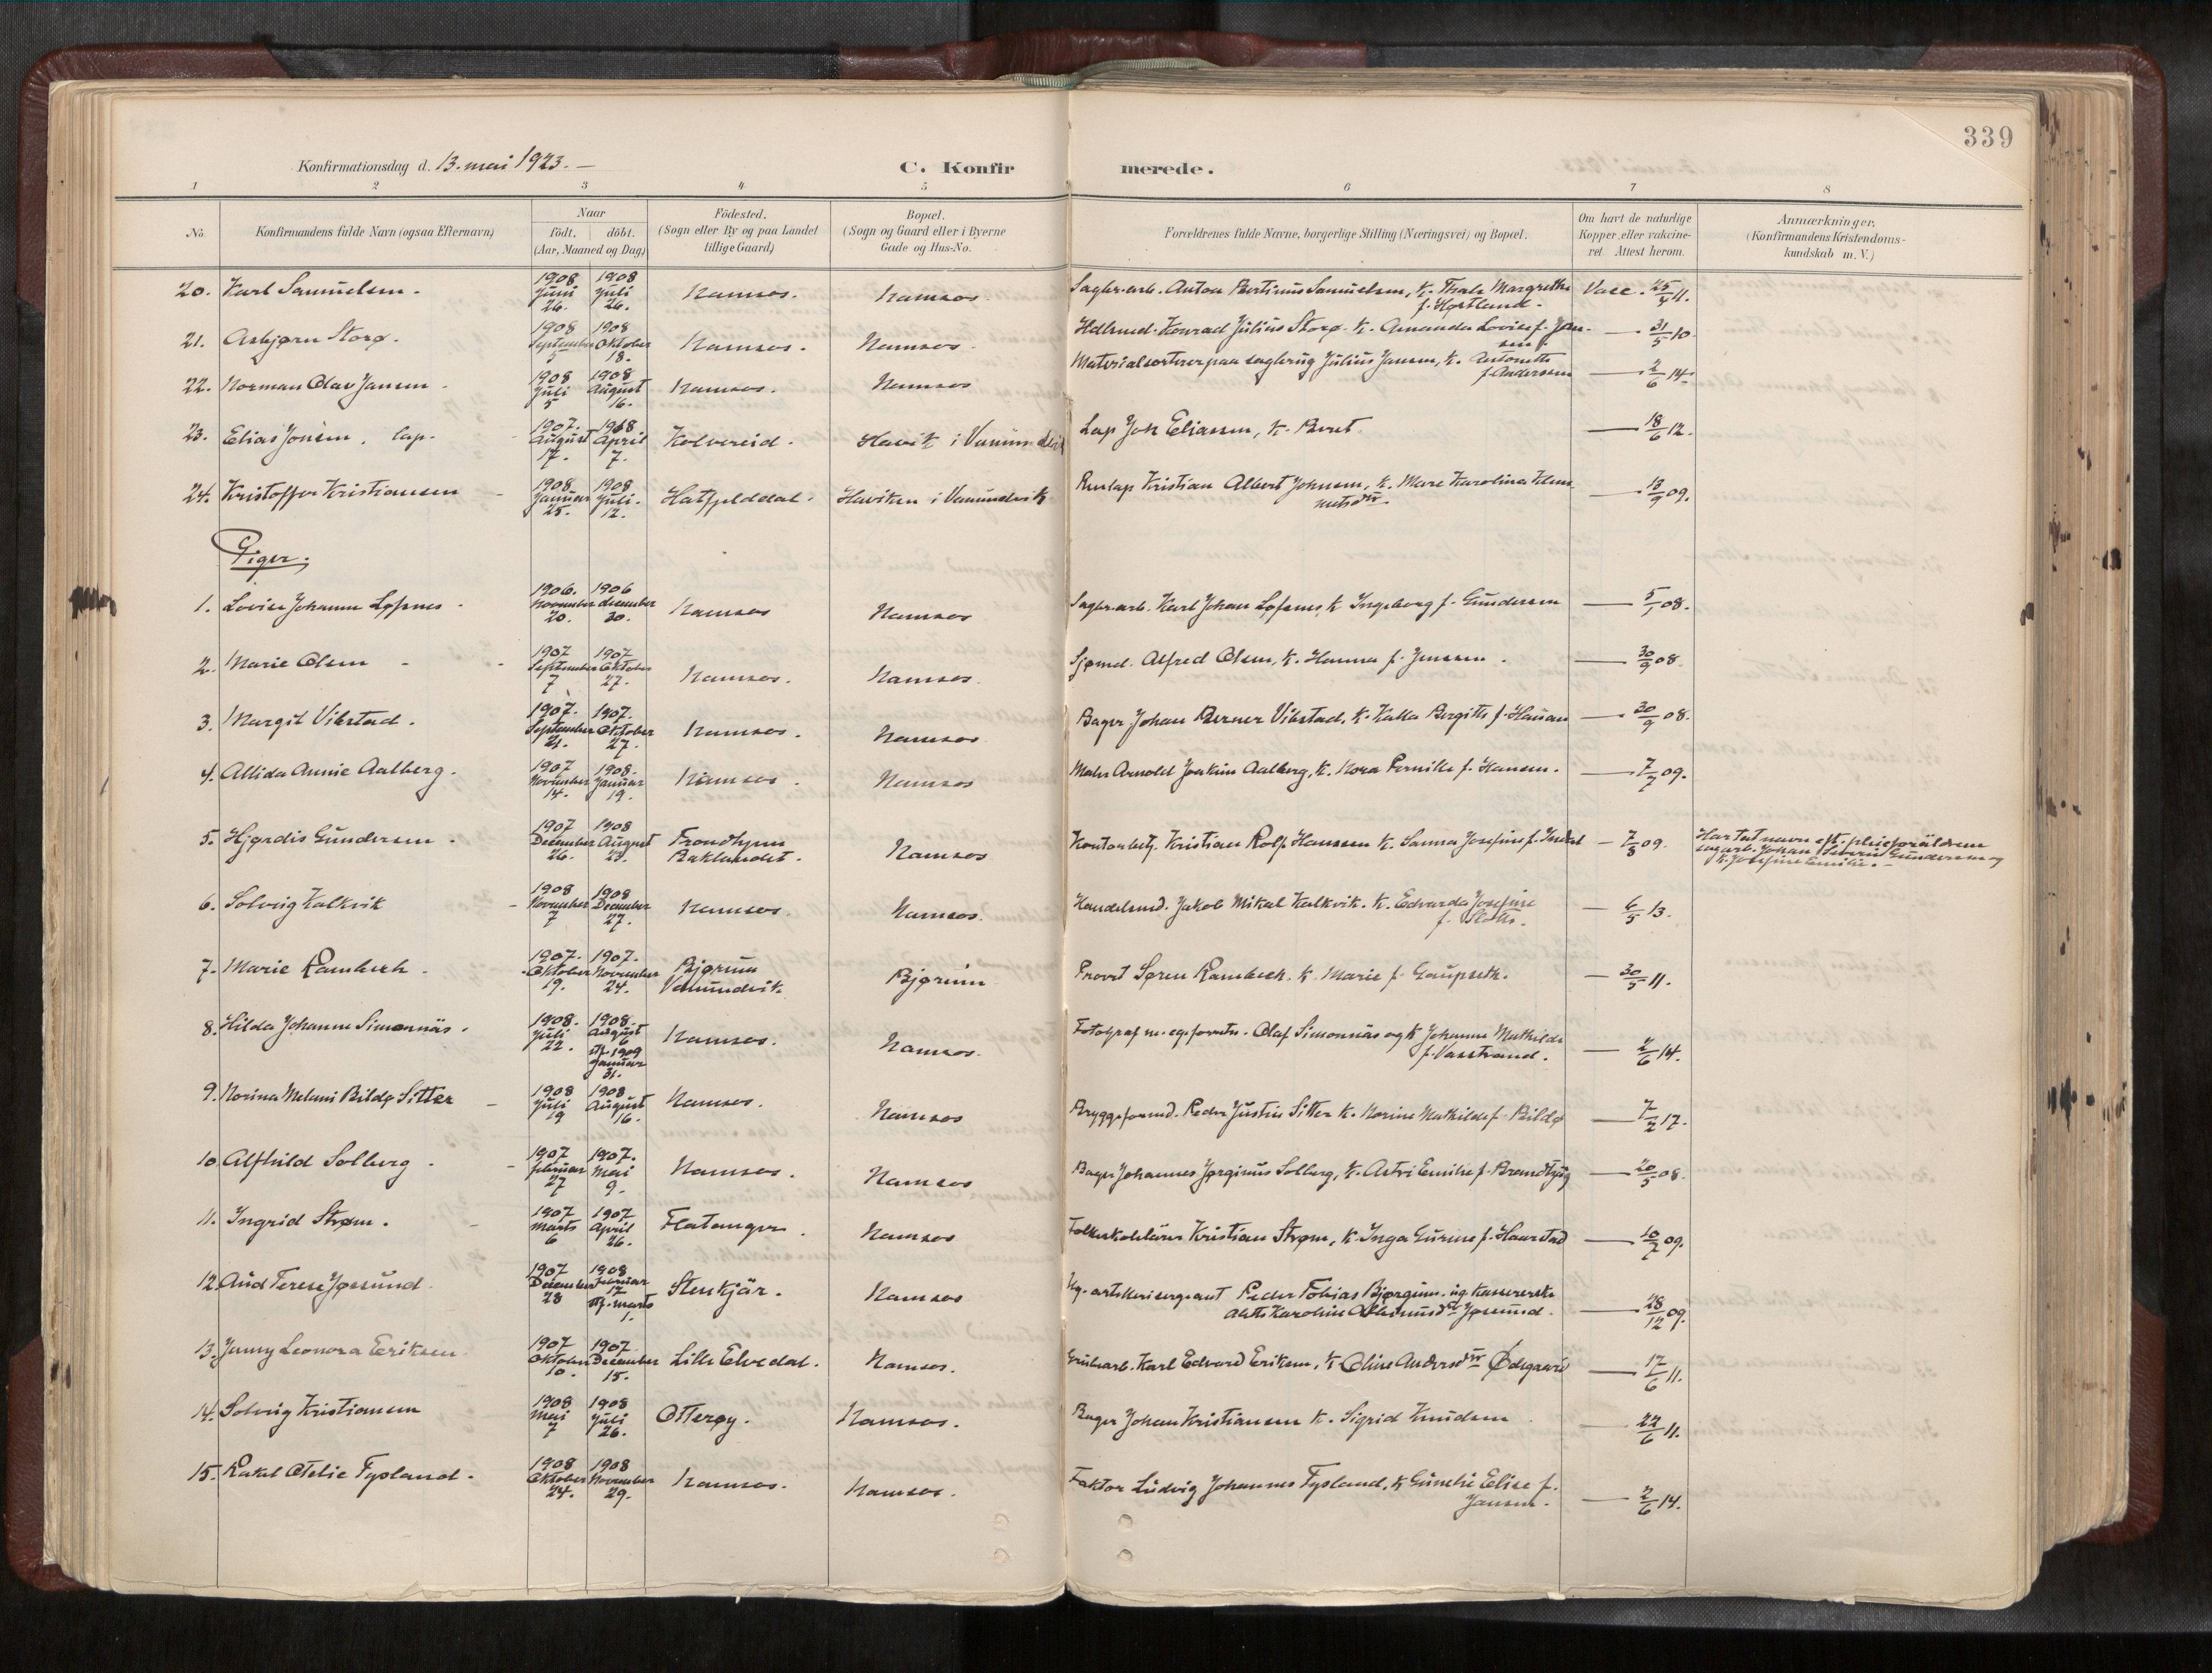 339
Konfirmationsdag d. 13. mai 1923. —
C. Konfirmerede.
1 2 3 4 5 6 7 8
No.
Konfirmandens fulde Navn (ogsaa Efternavn)
Naar
födt. döbt.
(Aar, Maaned og Dag)
Födested.
(Sogn eller By og paa Landet
tillige Gaard)
Bopæl.
(Sogn og Gaard eller i Byerne
Gade og Hus-No.
Forældrenes fulde Navne, borgerlige Stilling (Næringsvei) og Bopæl.
Om havt de naturlige
Kopper eller vakcine-
ret. Attest herom.
Anmærkninger.
(Konfirmandens Kristendoms-
kundskab m. V.)
20. Karl Samuelsen. 1908 Juni 26. 1908 Juli 26. Namsos. Namsos. Sagbr.arb. Anton Bertinus Samuelsen, K. Thale Margrethe
f. Hortland. Vacc. 25/4 11.
21. Asbjørn Storø. 1908 September 5 1908 Oktober 18. Namsos. Namsos. Hdlsmd. Konrad Julius Storø. K. Amanda Lovise f. Jen-
sen. — 31/5 10.
22. Norman Olav Jansen. 1908 Juli 5 1908 August 16. Namsos. Namsos Materialsorterer paa sagbrug Julius Jansen, K. Antonette
f. Andersen — 2/6 14.
23. Elias Jonsen, lap. 1907. August 17. 1908 April 7. Kolvereid. Havik i Vemundvik Lap Jon Eliassen, K. Beret — 18/6 12.
24. Kristoffer Kristiansen 1908. Januar 25. 1908 Juli. 12. Hatfjelddal. Haviken i Vemundvik Kristian Albert Johnsen, K. Mare Karolina Klem
metsdtr — 13/9 09.
Piger.
1. Lovise Johanne Løfsnes. 1906. November 20. 1906 december 30. Namsos Namsos Sagbr.arb. Karl Johan Løfsnes, K. Ingeborg f. Gundersen — 5/1 08.
2. Marie Olsen 1907 September 7 1907 Oktober 27. Namsos. Namsos. Sjømd. Alfred Olsen, K. Hanna f. Jenssen. — 30/9 08.
3. Margit Vibstad. 1907. September 21. 1907. Oktober 27. Namsos. Namsos Bager Johan Berner Vibstad, K. Kalla Bergitte f. Hansen — 30/9 08.
4. Allida Annie Aalberg. 1907 November 14. 1908. Januar 19. Namsos. Namsos Maler Arnold Joakim Aalberg, K. Nora Pernille f. Hansen. — 7/7 09.
5. Hjørdis Gundersen. 1907 December 26. 1908 August 23. Trondhjem
Baklandet. Namsos Kontorbetj. Kristian Rolf Hanssen K. Sanna Josefine f. — 7/8 09. Har tat navn eft. pleieforäldrene
sagarb. Johan Severin Gundersen og
K. Josefine Emilie. —
6. Solveig Kalkvik 1908 November 7 1908 December 27. Namsos. Namsos. Handelsmd. Jakob Mikal Kalkvik. K. Edvarda Josefine
f. — 6/5 13.
7. Marie Rambech. 1907. Oktober 19. 1907. November 24. Bjørum
Vemundvik Bjørum Provst Søren Rambech. K. Marie f. Gaupseth. — 30/5 11.
8. Hilda Johanne Simonnäs. 1908. Juli 22. 1908. August 6 stf. 1909 januar 31. Namsos. Namsos. Fotograf m. eg. forretn. Olaf Simonnäs og K Johanne Mathilde
f. Vasstrand. — 2/6 14.
9. Norina Melani Bildø Sitter 1908 Juli 19 1908. August 16. Namsos. Namsos Bryggeformd. Peder Justin Sitter K. Norine Mathilde f. Bildø — 7/2 17.
10. Alfhild Solberg. 1907 februar 27 1907. Mai 9. Namsos. Namsos Bager Johannes Jørginus Solberg, K. Astri Emilie f. — 20/5 08.
11. Ingrid Strøm. 1907 Marts 6 1907 April 26. Flatanger. Namsos Folkeskolelärer Kristian Strøm, K. Inga Gurine f. Haarstad — 10/7 09.
12. Aud Terese Jøssund. 1907 December 28 1908 Februar 17 stf. marts 1. Stenkjär. Namsos Ug. artillerisergeant Peder Tobias Bjørgum. ug. Kassererske
Karoline Jøssund. — 28/12 09.
13. Jenny Leonora Eriksen. 1907 Oktober 10. 1907. December 15. Lille Elvedal. Namsos. Grubearb. Karl Edvard Eriksen, K Oline Andersdtr Ødegaard — 17/6 11.
14. Solveig Kristiansen 1908 Mai 7 1908 Juli 26. Otterøy. Namsos. Bager Johan Kristiansen K. Sigrid Knudsen — 22/6 11.
15. Rakel Otelie Fysland. 1908 Oktober 24. 1908 November 29. Namsos. Namsos. Faktor Ludvig Johannes Fysland, K Elise f.
Jansen. — 2/6 14.